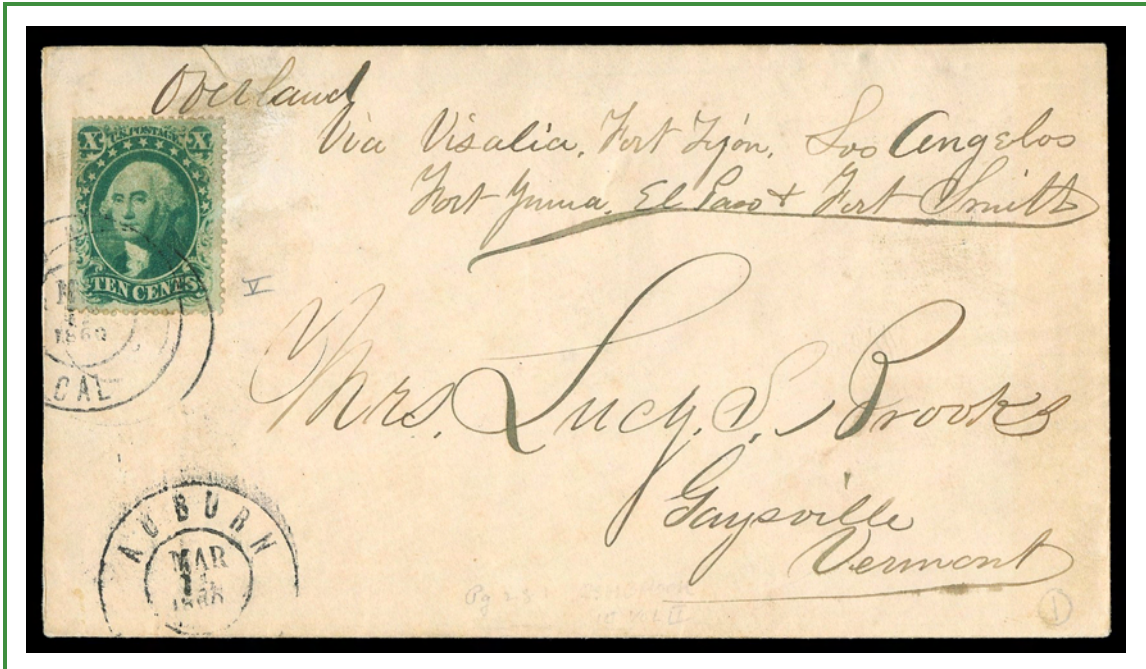 Overland
Via Visalia, Fort Tejón, Los Angelos
Fort Yuma, El Paso & Fort Smith
X U.S. POSTAGE X
TEN CENTS
V
1860
CAL
Mrs. Lucy. S. Brooks
Gaysville
Vermont
AUBURN
MAR
Pg
VOL II
1